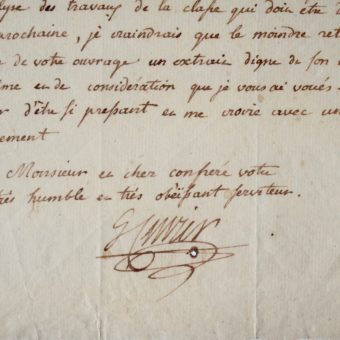 lyse des travaux de la classe qui doit être d
rochaine, je craindrais que le moindre ret
de votre ouvrage un extrait digne de son
ime et de considération que je vous ai voués.
r d'être si pressant et me croire avec un
ement
Monsieur et cher confrère votre
très humble et très obéissant serviteur.
G Cuvier